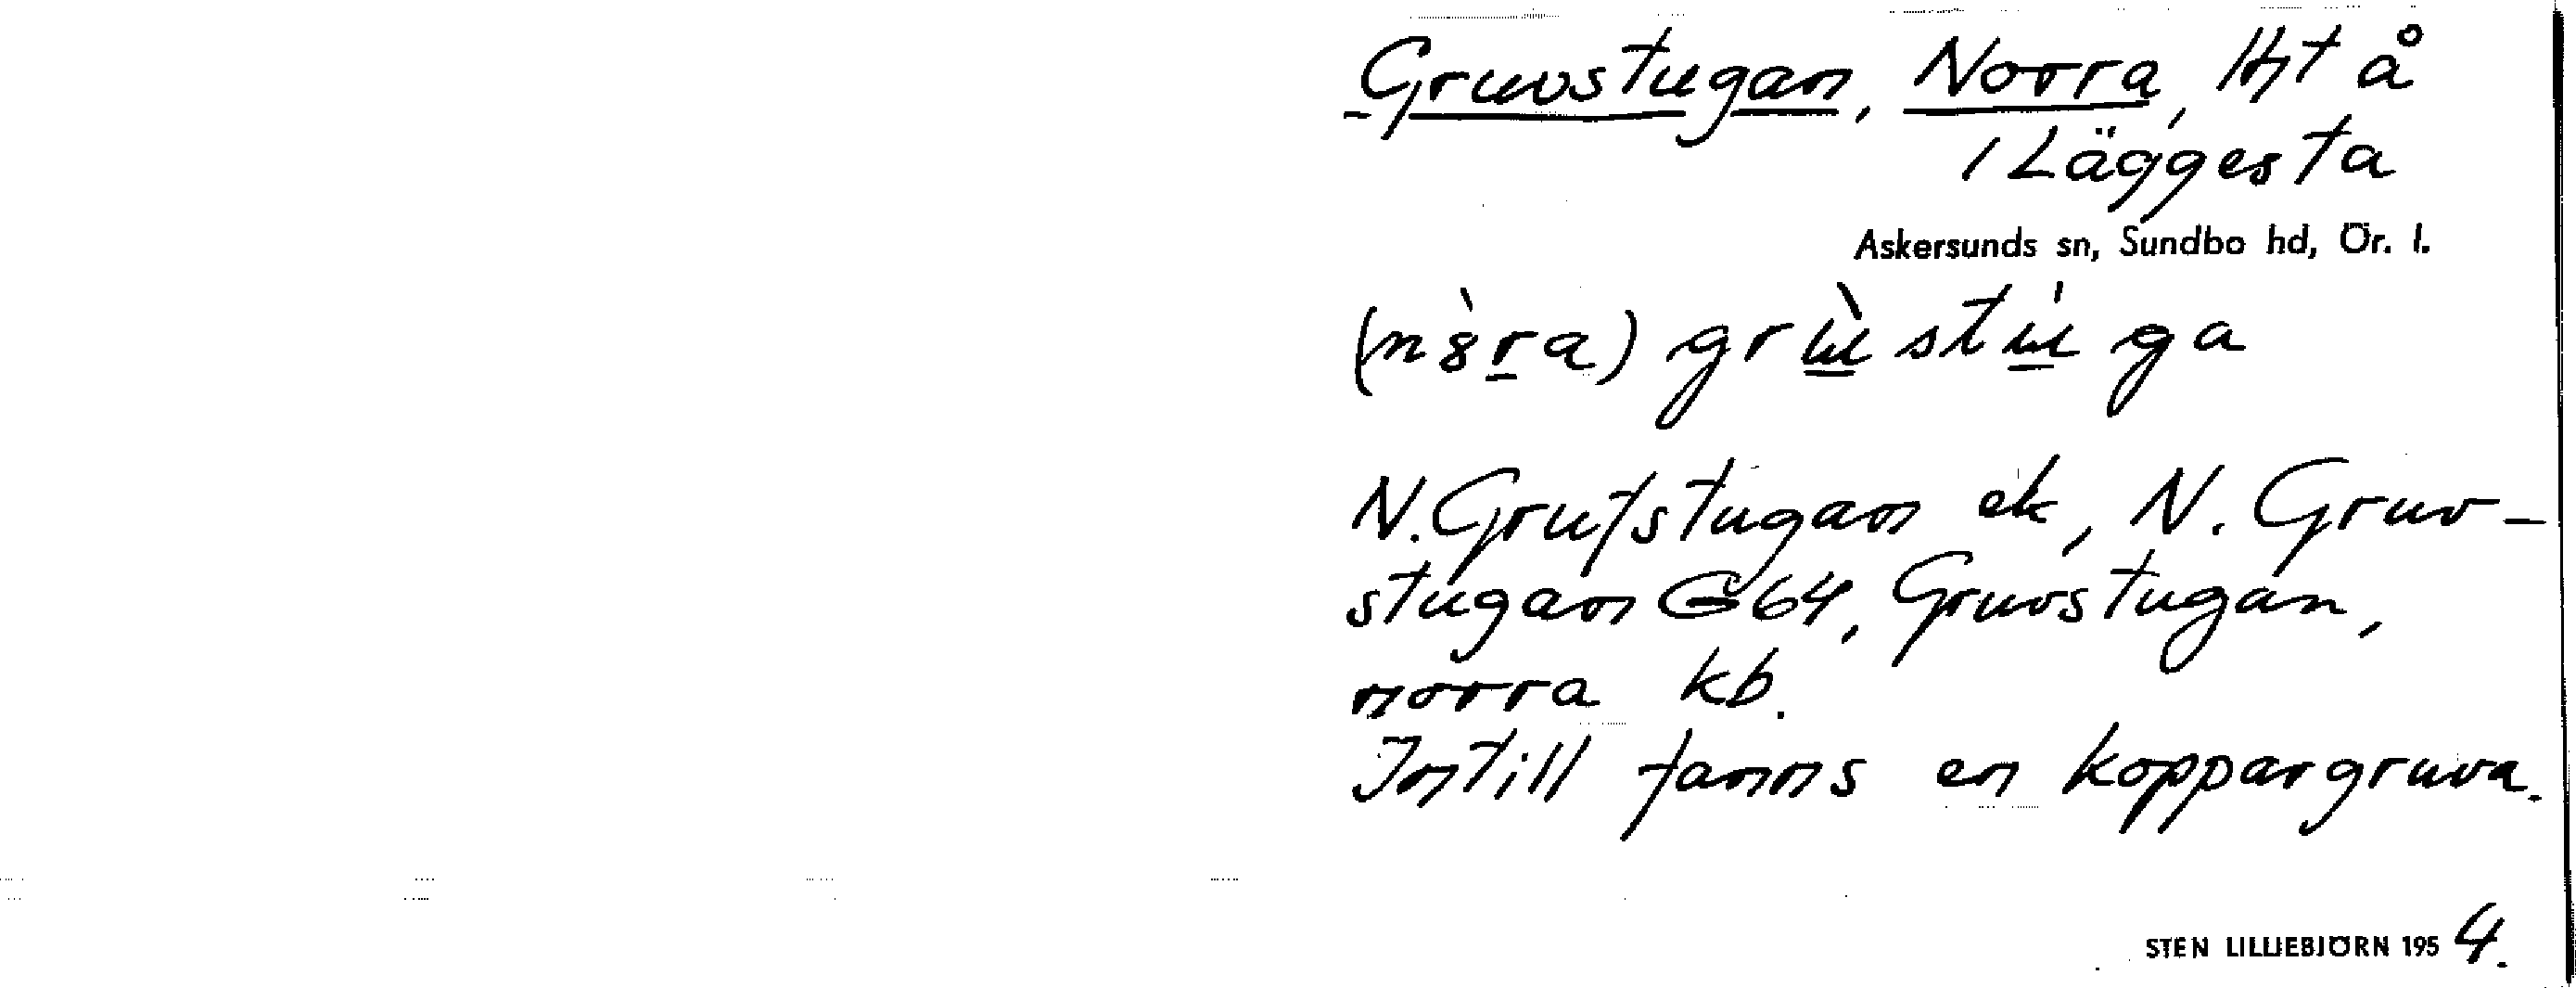 Gruvstugan, Norra, lht å
1 Läggesta
Askersunds sn, Sundbo hd, Ör. l.
(n8̀r̲a) grɯ̀stɯ́ga
N. Grufstugan ek, N. Gruv-
stugan G64, Gruvstugan,
norra kb.
Intill fanns en koppargruva.
STEN LILLIEBJÖRN 1954.